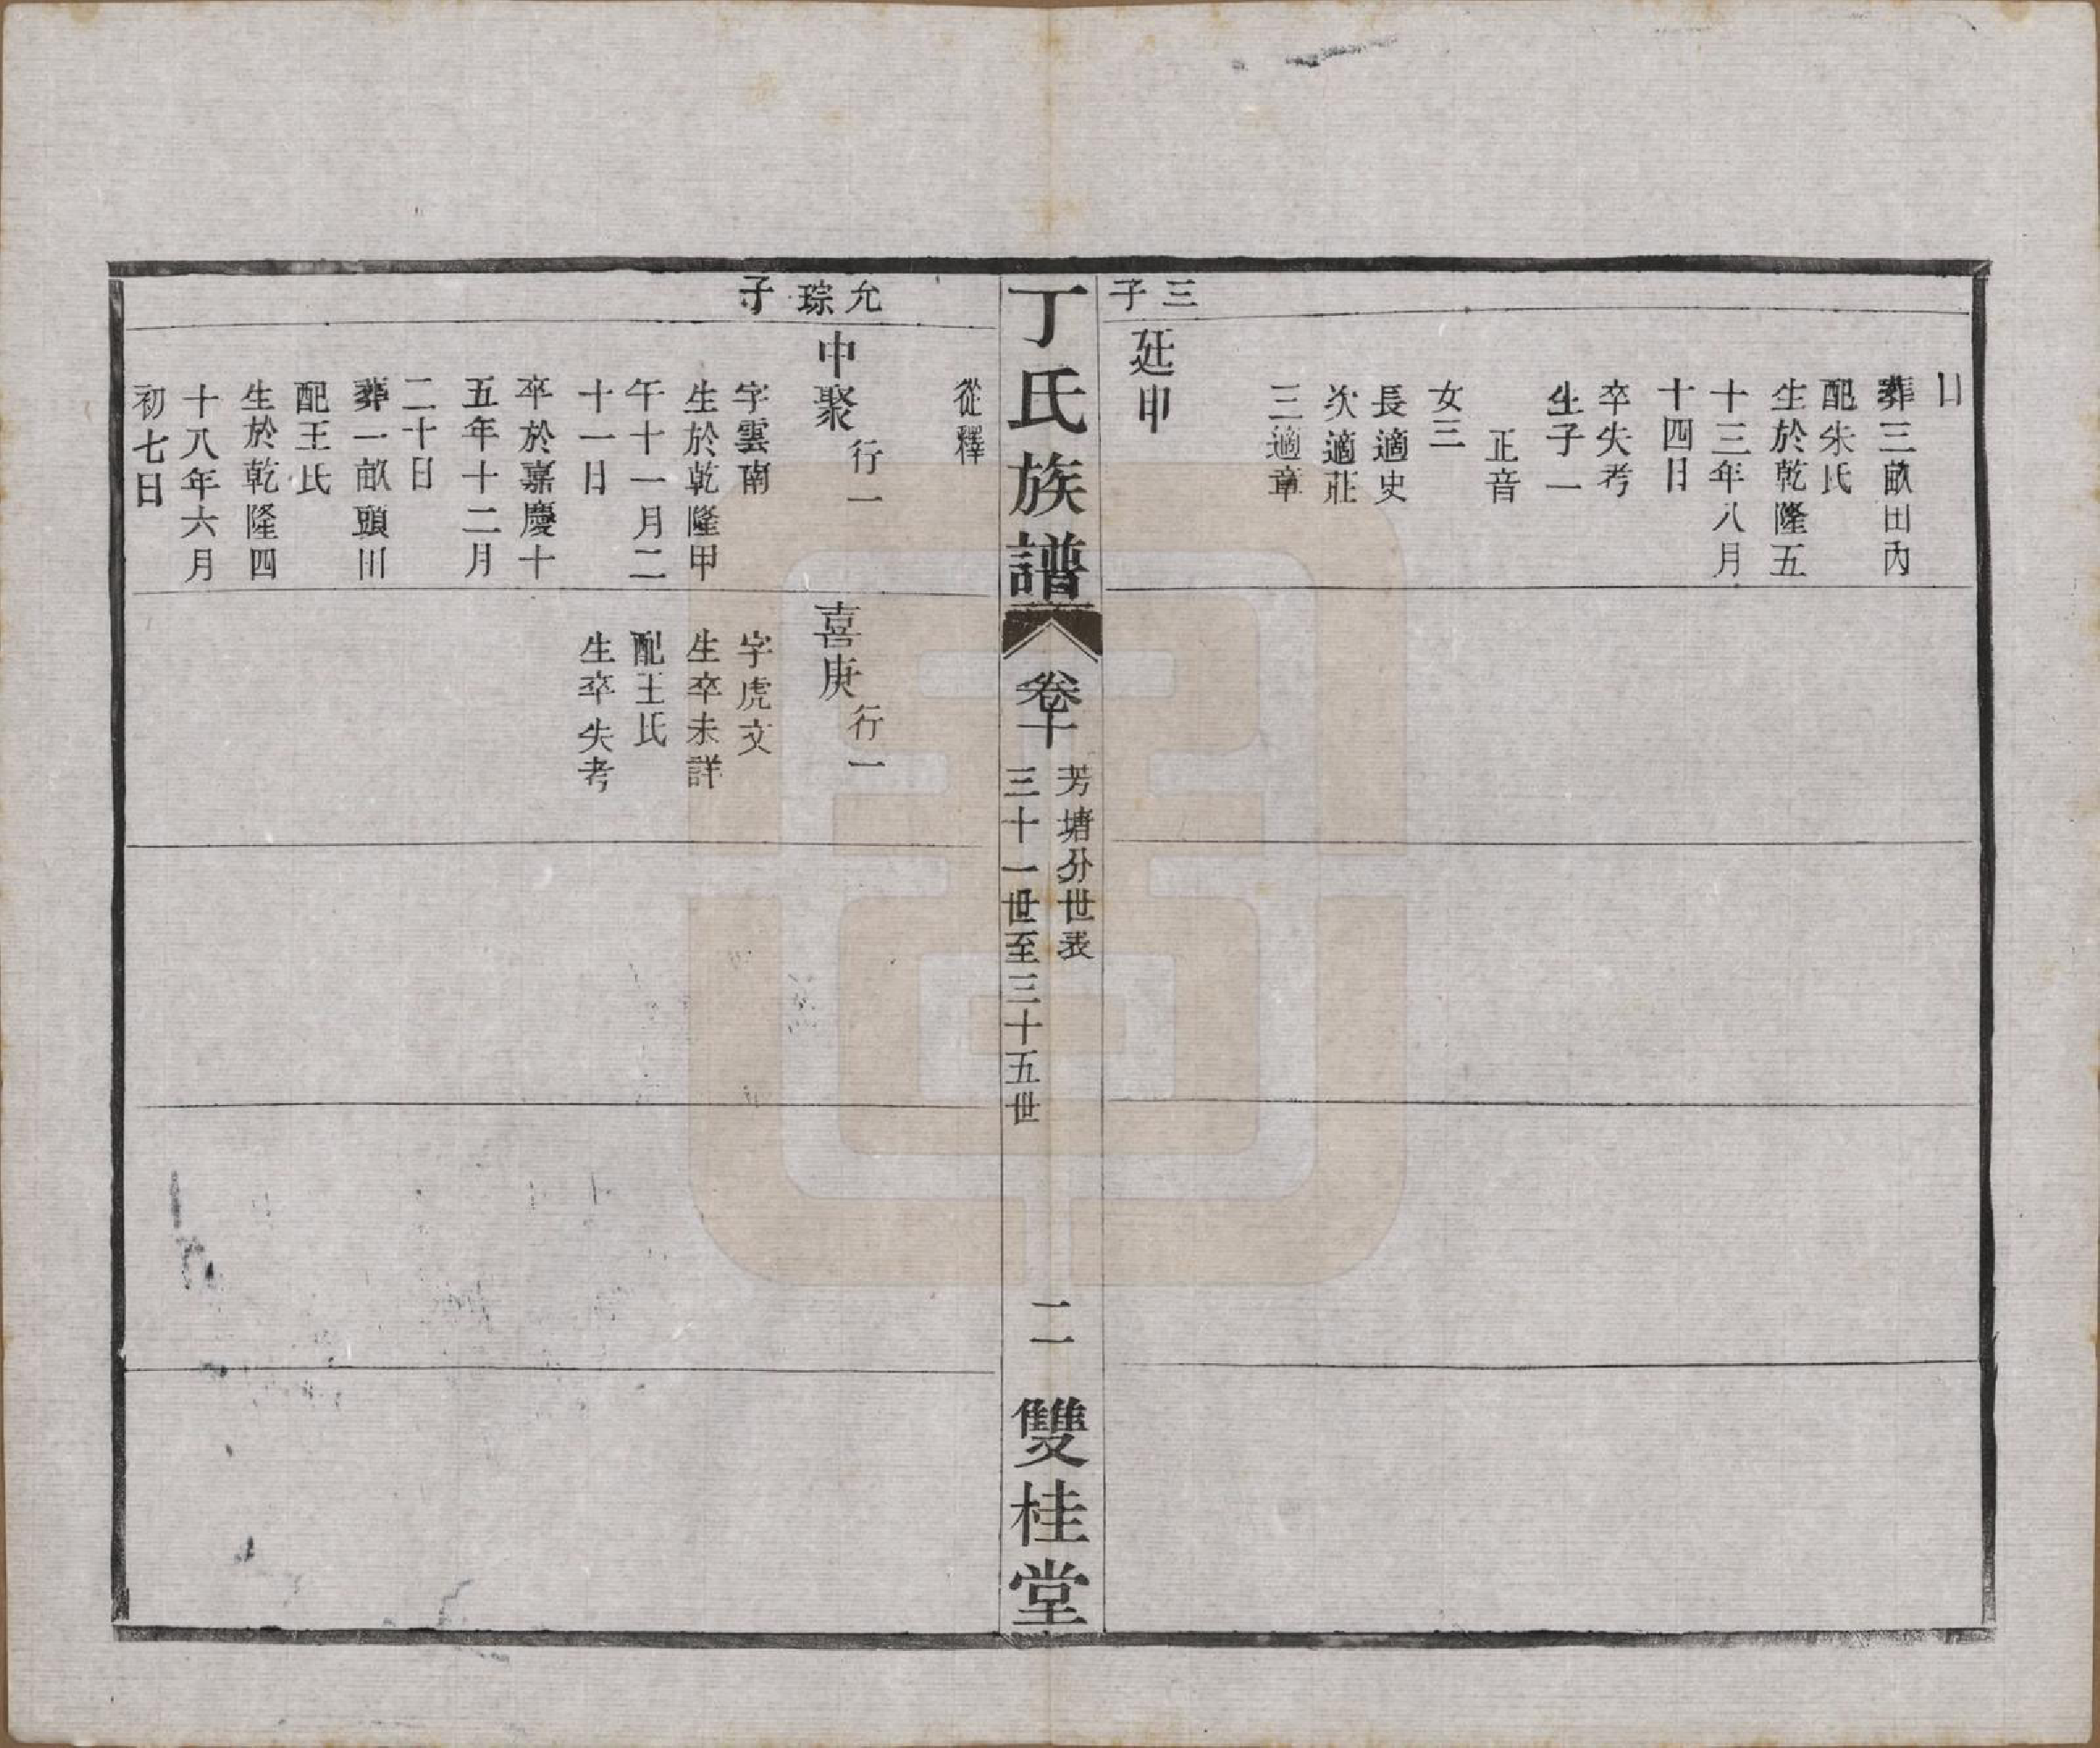 日
葬三畝田內
配朱氏
生於乾隆五
十三年八月
十四日
卒失考
生子一
正音
女三
長適史
次適莊
三適章
三子
廷申
丁氏族譜
卷十
芳塘分世表
三十一世至三十五世
二
雙桂堂
從釋
允琮子
中聚
行一
字雲南
生於乾隆甲
午十一月二
十一日
卒於嘉慶十
五年十二月
二十日
葬一畝頭川
配王氏
生於乾隆四
十八年六月
初七日
喜庚
行一
字虎文
生卒未詳
配王氏
生卒失考